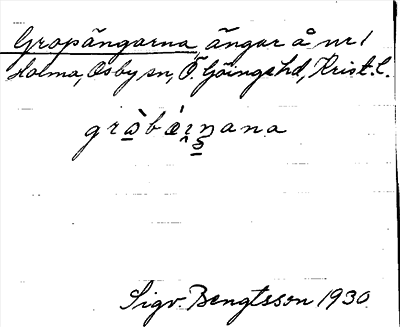 Gropängarna, ängar å nr 1
Holma, Osby sn, Ö. Göinge hd, Krist. l.
Sigv. Bengtsson 1930